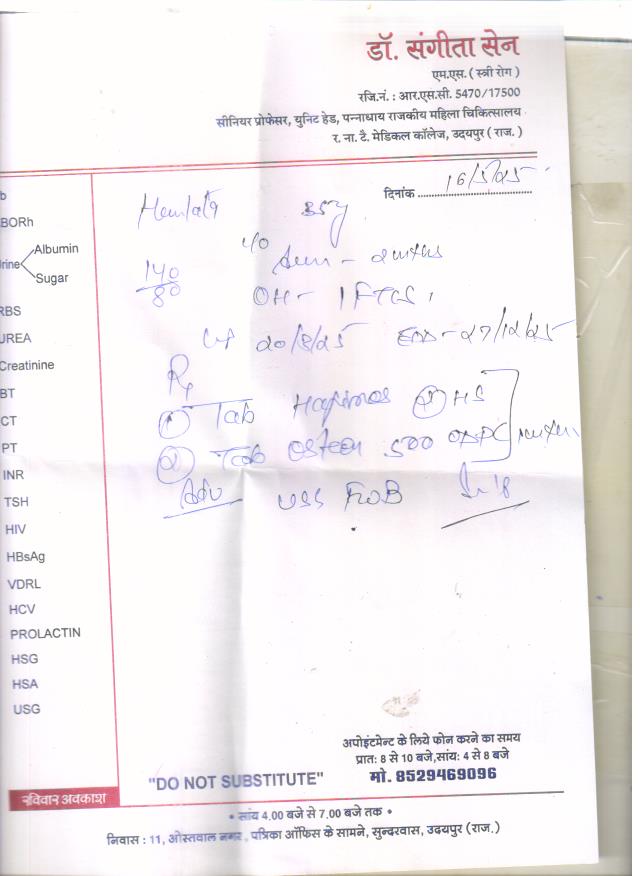 डॉ. संगीता सेन
एम.एस. ( स्त्री रोग )
रजि.नं. : आर.एस.सी. 5470/17500
सीनियर प्रोफेसर, युनिट हेड, पन्नाधाय राजकीय महिला चिकित्सालय
र. ना. टै. मेडिकल कॉलेज, उदयपुर ( राज. )
दिनांक 16/5/25
b
BORh
rine Albumin
Sugar
RBS
UREA
Creatinine
BT
CT
PT
INR
TSH
HIV
HBsAg
VDRL
HCV
PROLACTIN
HSG
HSA
USG
रविवार अवकाश
Hemlata 35y
140/80
OH- 1 FTCS
20/3/25 EDD - 27/12/25
Rx
① Tab HS
② Tab 500
Adv USS FWB
अपोइंटमेन्ट के लिये फोन करने का समय
प्रात: 8 से 10 बजे,सांय: 4 से 8 बजे
मो. 8529469096
"DO NOT SUBSTITUTE"
• सांय 4.00 बजे से 7.00 बजे तक •
निवास : 11, ओस्तवाल नगर, पत्रिका ऑफिस के सामने, सुन्दरवास, उदयपुर (राज.)